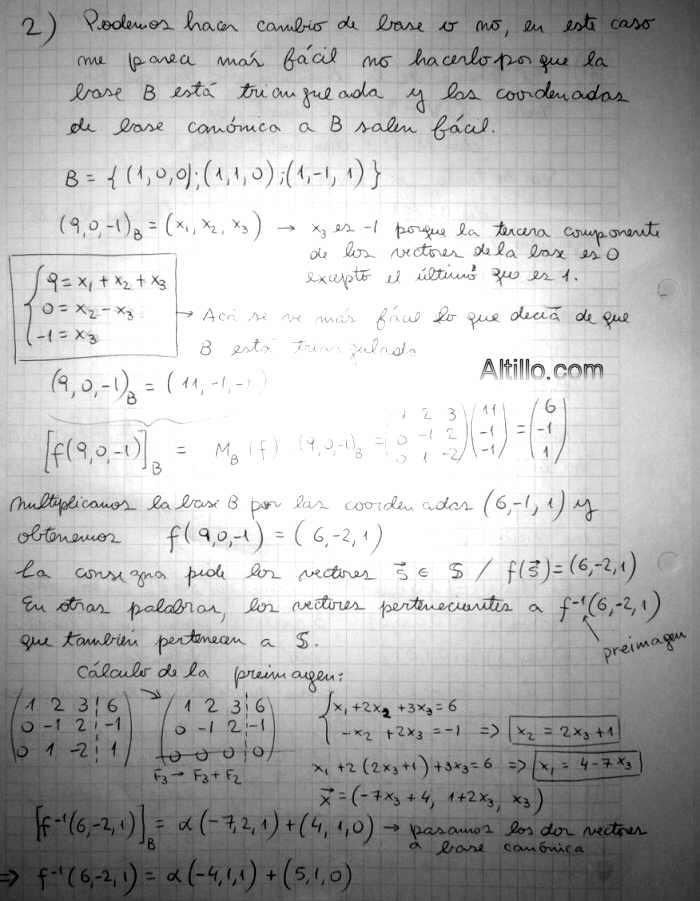 2) Podemos hacer cambio de base o no, en este caso
me parece más fácil no hacerlo porque la
base B está triangulada y las coordenadas
de base canónica a B salen fácil.
B = { (1,0,0);(1,1,0);(1,-1,1) }
(9,0,-1)_B = (x₁, x₂, x₃) → x₃ es -1 porque la tercera componente
de los vectores de la base es 0
excepto el último que es 1.
{ 9 = x₁ + x₂ + x₃
0 = x₂ - x₃
-1 = x₃
→ Acá se ve más fácil lo que decía de que
B está triangulada
Altillo.com
(9,0,-1)_B = (11,-1,-1)
[f(9,0,-1)]_B = M_B(f) (9,0,-1)_B = (1 2 3; 0 -1 2; 0 1 -2) (11; -1; -1) = (6; -1; 1)
Multiplicamos la base B por las coordenadas (6,-1,1) y
obtenemos f(9,0,-1) = (6,-2,1)
La consigna pide los vectores s⃗ ∈ S / f(s⃗) = (6,-2,1)
En otras palabras, los vectores pertenecientes a f⁻¹(6,-2,1)
que también pertenecen a S.
preimagen
Cálculo de la preimagen:
(1 2 3 | 6; 0 -1 2 | -1; 0 1 -2 | 1) → (1 2 3 | 6; 0 -1 2 | -1; 0 0 0 | 0)
F₃ → F₃ + F₂
{ x₁ + 2x₂ + 3x₃ = 6
-x₂ + 2x₃ = -1 ⇒ x₂ = 2x₃ + 1
x₁ + 2(2x₃+1) + 3x₃ = 6 ⇒ x₁ = 4 - 7x₃
x⃗ = (-7x₃ + 4, 1 + 2x₃, x₃)
[f⁻¹(6,-2,1)]_B = α(-7,2,1) + (4,1,0) → pasamos los dos vectores
a base canónica
⇒ f⁻¹(6,-2,1) = α(-4,1,1) + (5,1,0)